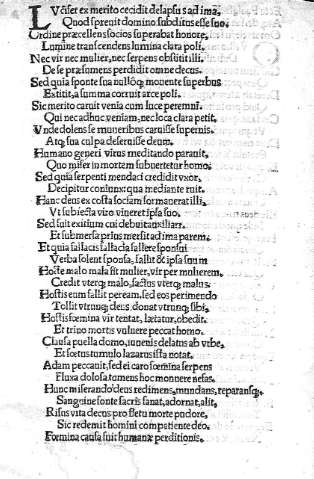 LVcifer ex merito cecidit delapsus ad ima.
Quod spreuit domino subditus esse suo.
Ordine præcellens socios superabat honore,
Lumine transcendens lumina clara poli.
Nec vir nec mulier, nec serpens obstitit illi.
De se præsumens perdidit omne decus.
Sed quia sponte sua nulloq; mouente superbus
Extitit, a summa corruit arce poli.
Sic merito caruit venia cum luce peremni.
Qui nec adhuc veniam, nec loca clara petit.
Vnde dolens se muneribus caruisse supernis.
Atq; sua culpa deseruisse deum.
Humano generi virus meditando parauit,
Quo miser in mortem subuertetur homo.
Sed quia serpenti mendaci credidit vxor,
Decipitur coniunx qua mediante ruit.
Hanc deus ex costa sociam formauerat illi.
Vt subiecta viro viueret ipsa suo.
Sed fuit exitium cui debuit auxiliari.
Et submersa prius mersit ad ima parem.
Et quia fallacis fallacia fallere sponsum
Verba solent sponsa, fallit & ipsa suum
Hoste malo mala sit mulier, vir per mulierem.
Credit vterq; malo, factus vterq; malus.
Hostis eum fallit per eam, sed eos perimendo
Tollit vtrunq; deus, donat vtrunq; sibi.
Hostis fœmina vir tentat, lætatur, obedit.
Et trino mortis vulnere peccat homo.
Clausa puella domo, iuuenis delatus ab vrbe.
Et fœtus tumulo lazarus ista notat.
Adam peccauit, sed ei caro fœmina serpens
Fluxa dolosa tumens hoc monuere nefas.
Hunc miserando deus redimens, mundans, reparansq;,
Sanguine fonte sacris sanat, adornat, alit.
Risus vita decus pro fletu morte pudore,
Sic redeunt homini compatiente deo.
Fœmina causa fuit humanæ perditionis.